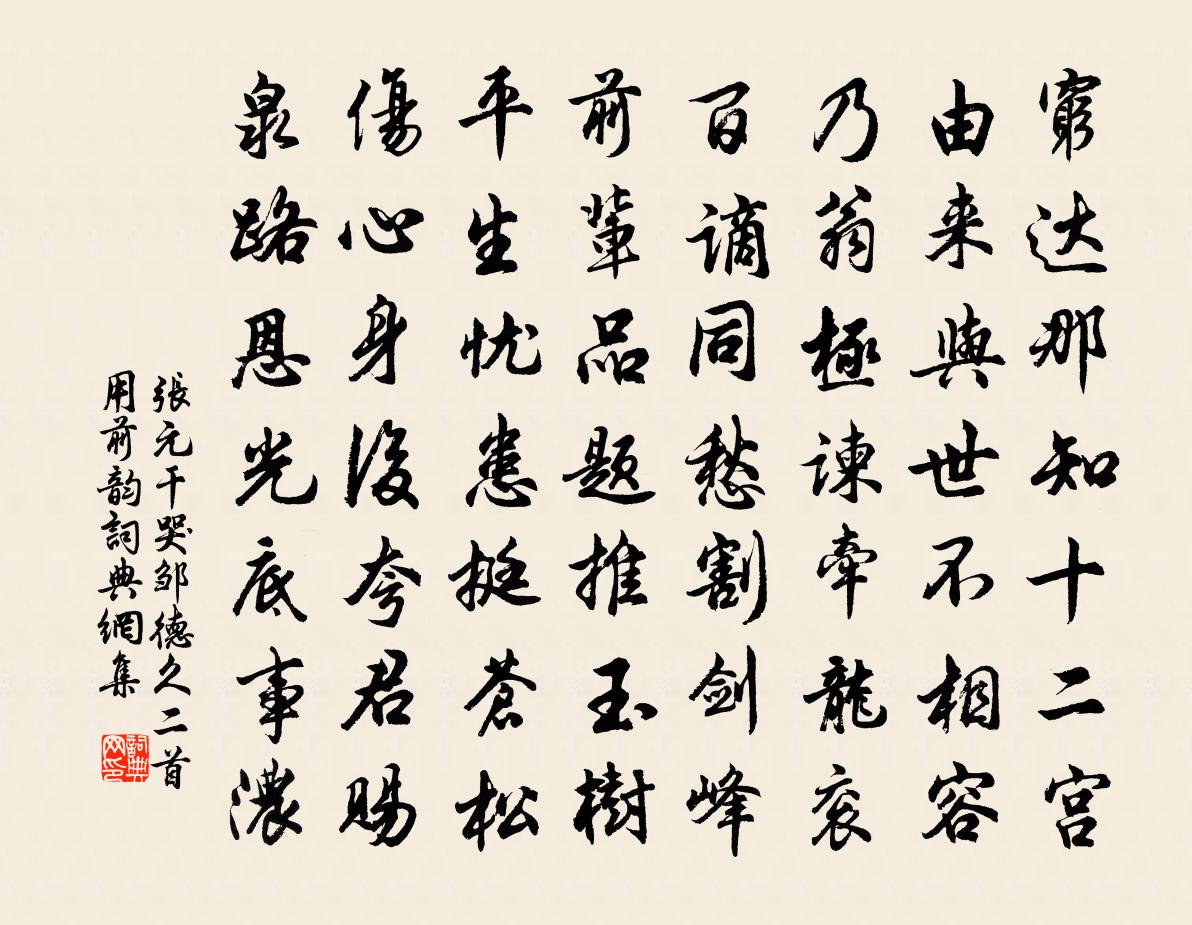 窮达那知十二宫
由来與世不相容
乃翁極諫牽龍衮
百谪同愁割剑峰
前輩品题推玉樹
平生忧患挺蒼松
傷心身後夸君賜
泉路恩光底事濃
張元干哭邹德久二首
用前韵詞典網集
詞典网印